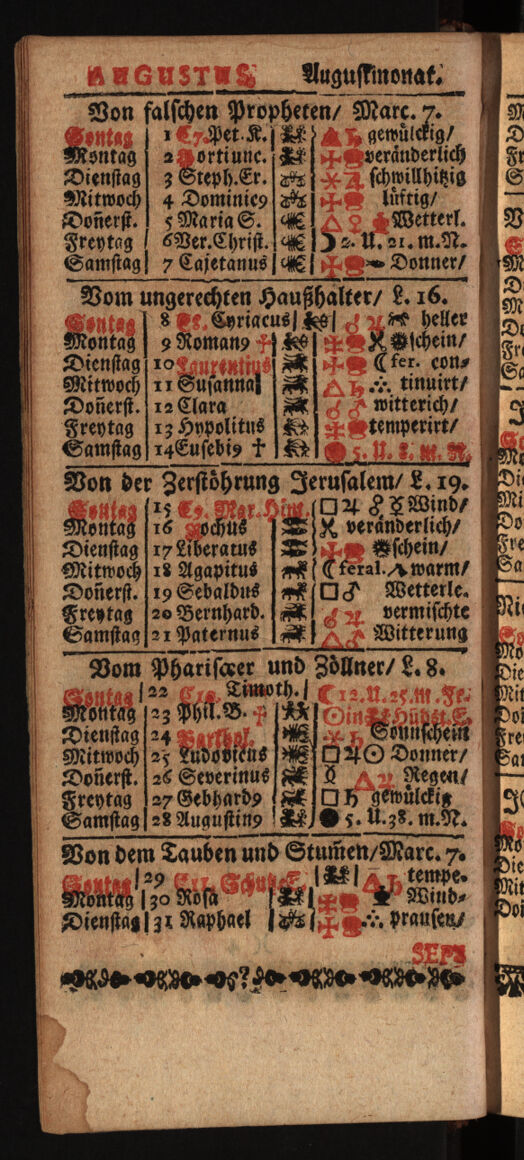 AUGUSTUS. Augustmonat.
Von falschen Propheten/ Marc. 7.
Sontag 1 C7. Pet. K. △ ♄ gewülckig/
Montag 2 Portiunc. veränderlich
Dienstag 3 Steph. Er. ⚹ ♃ schwillhitzig
Mitwoch 4 Dominic9 lüftig/
Doñerst. 5 Maria S. △ ♀ Wetterl.
Freytag 6 Ver. Christ. ☽ 2. U. 21. m. N.
Samstag 7 Cajetanus Donner/
Vom ungerechten Haußhalter/ L. 16.
Sontag 8 C8. Cyriacus ☌ ♃ heller
Montag 9 Roman9 schein/
Dienstag 10 Laurentius ☾ fer. con-
Mitwoch 11 Susanna △ ♄ ∴ tinuirt/
Doñerst. 12 Clara ☌ ♂ witterich/
Freytag 13 Hypolitus temperirt/
Samstag 14 Eusebi9 † 5. U. 8. m. N.
Von der Zerstöhrung Jerusalem/ L. 19.
Sontag 15 C9. Mar. Him. □ ♃ ☍ ☿ Wind/
Montag 16 Rochus veränderlich/
Dienstag 17 Liberatus schein/
Mitwoch 18 Agapitus ☾ feral. warm/
Doñerst. 19 Sebaldus □ ♂ Wetterle.
Freytag 20 Bernhard. ☌ ♃ vermischte
Samstag 21 Paternus △ ♂ Witterung
Vom Pharisæer und Zöllner/ L. 8.
Sontag 22 C10. Timoth. ☾ 12. U. 25. m. Fr.
Montag 23 Phil. B. ☉ in
Dienstag 24 Barthol. ⚹ ♄ Sonnschein
Mitwoch 25 Ludovicus □ ♃ ☉ Donner/
Doñerst. 26 Severinus △ ♃ Regen/
Freytag 27 Gebhard9 □ ♄ gewülckig
Samstag 28 Augustin9 ● 5. U. 38. m. N.
Von dem Tauben und Stum̃en/ Marc. 7.
Sontag 29 C11. Schutz E. △ ♄ tempe.
Montag 30 Rosa Wind-
Dienstag 31 Raphael ∴ prausen/
SEPT